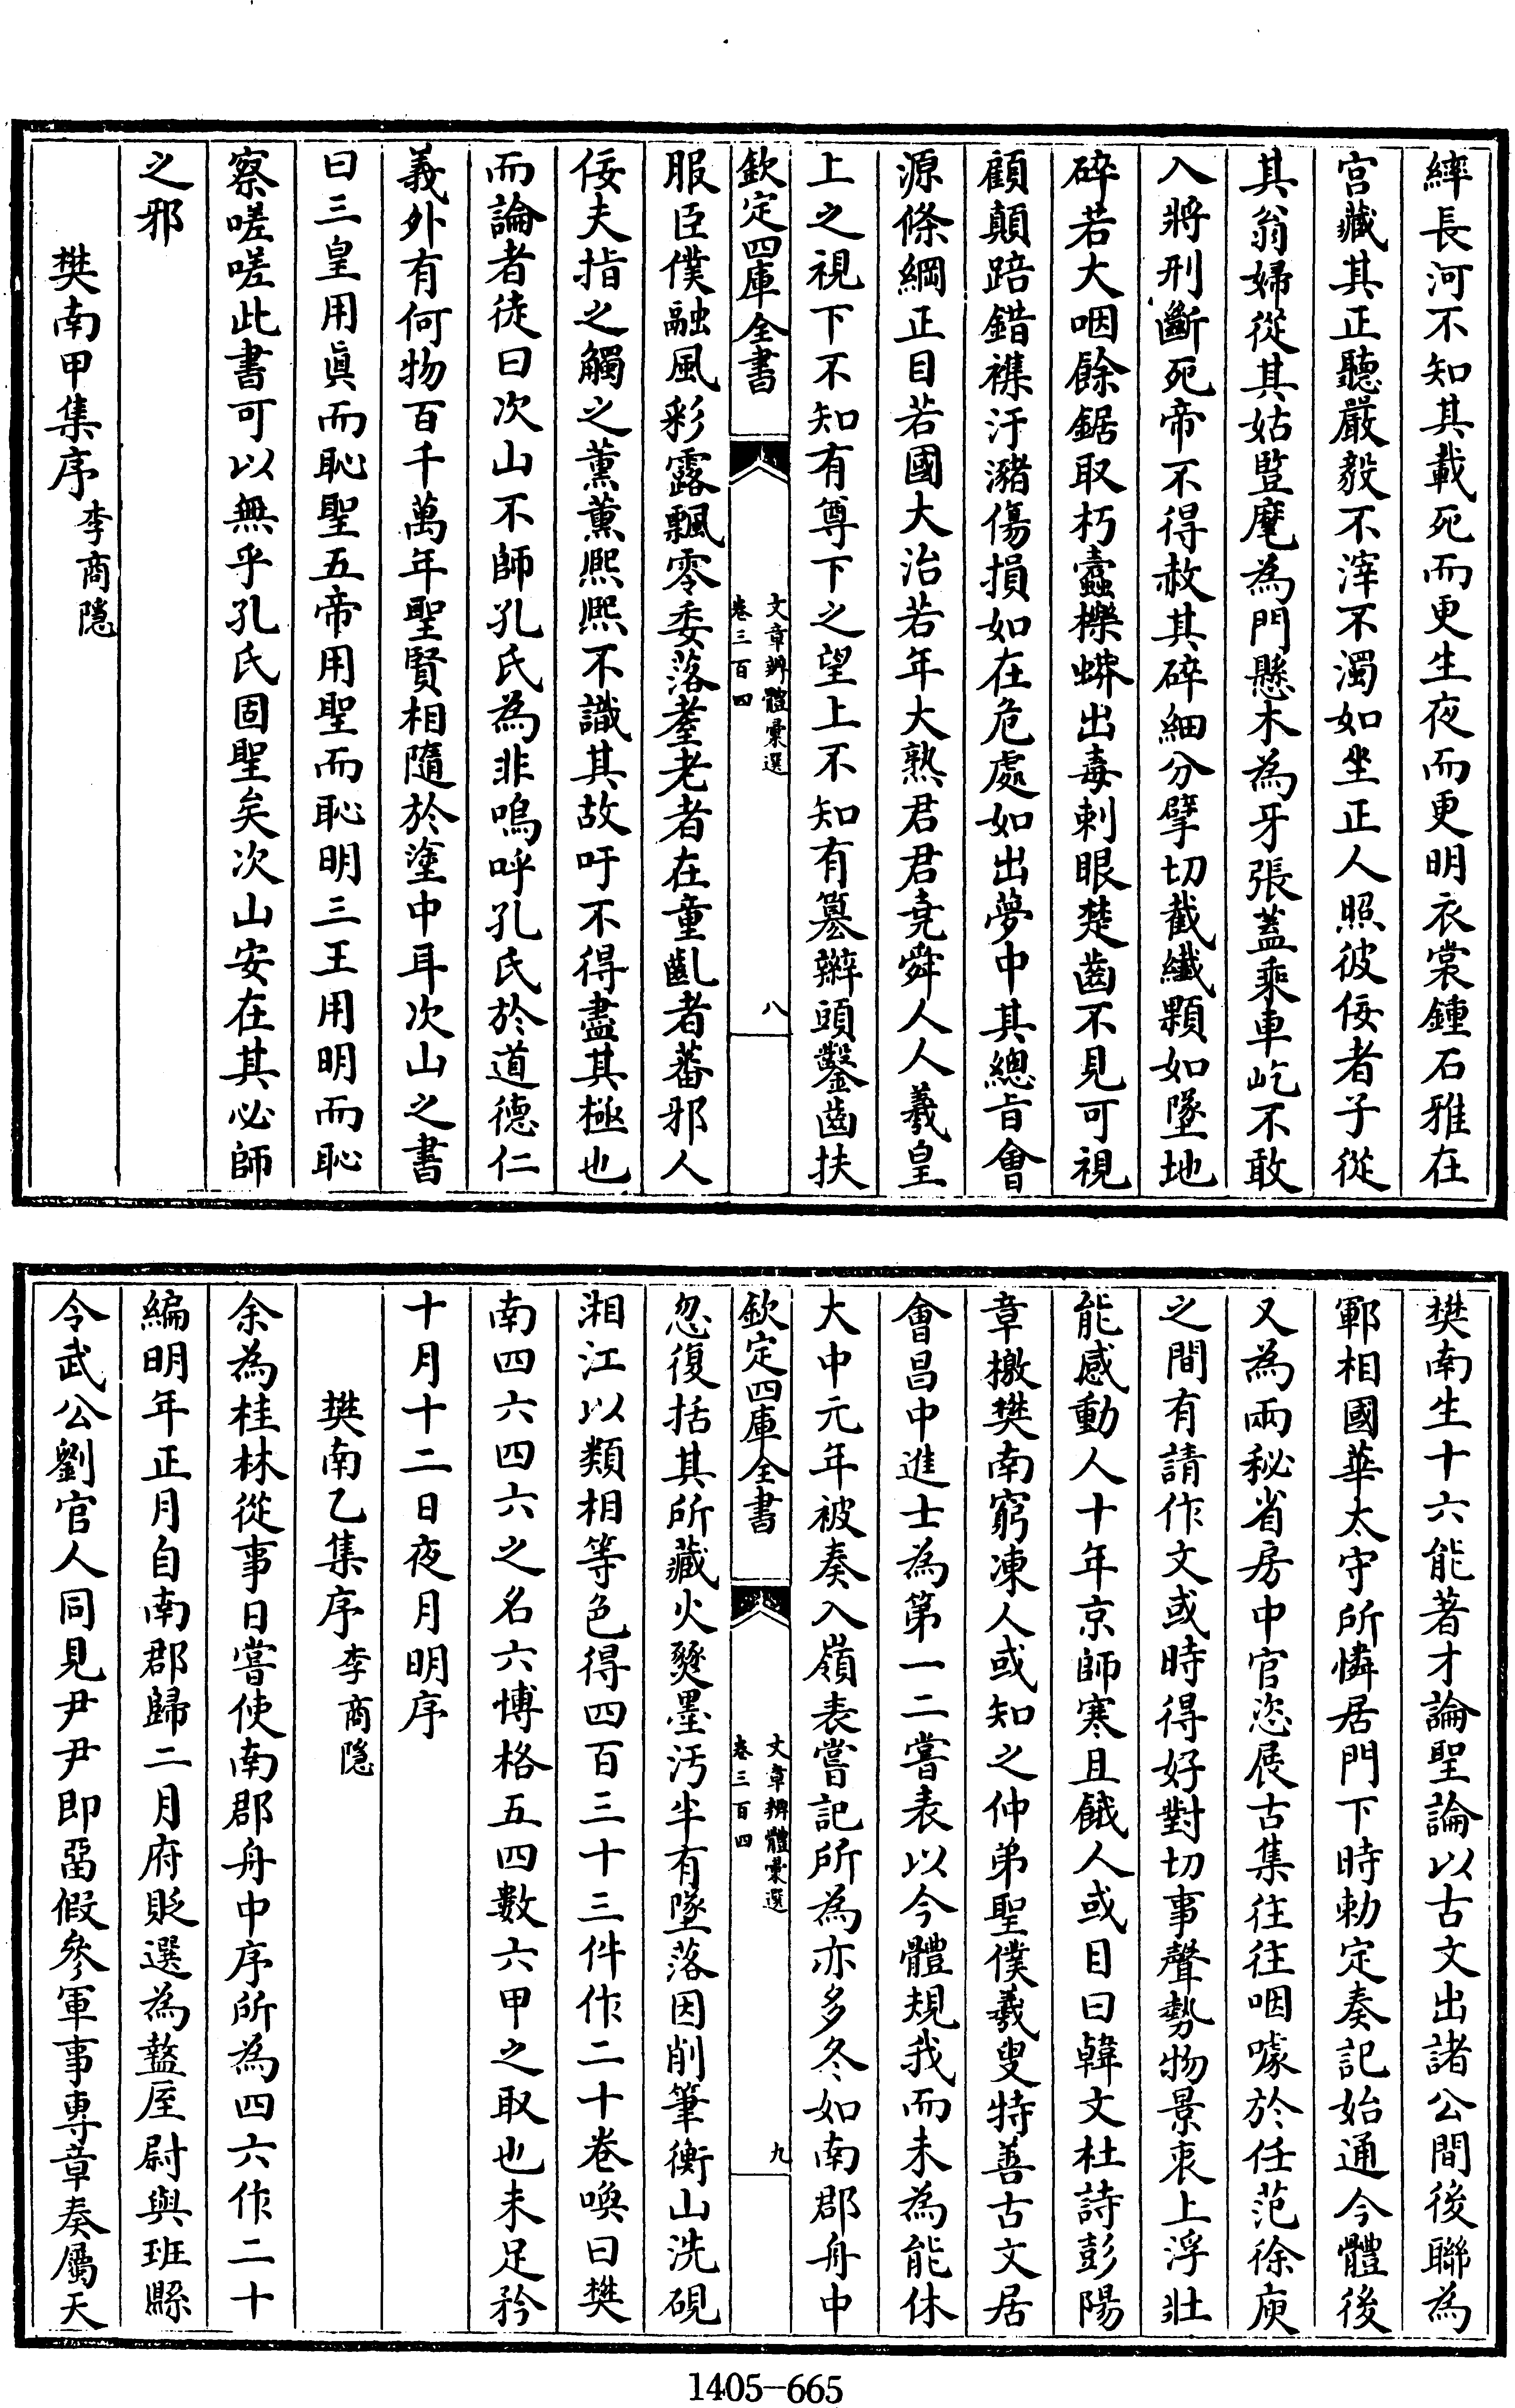 縴長河不知其載死而更生夜而更明衣裳鍾石雅在
宫藏其正聽嚴毅不滓不濁如坐正人照彼佞者子從
其翁婦從其姑豎麾為門懸木為牙張蓋乘車屹不敢
入將刑斷死帝不得赦其碎細分擘切截纎顆如墜地
碎若大咽餘鋸取朽蠧櫟蟒出毒刺眼楚齒不見可視
顧顛踣錯襍汙瀦傷損如在危處如出夢中其總㫖會
源條綱正目若國大治若年大熟君君堯舜人人羲皇
上之視下不知有尊下之望上不知有簒辮頭鑿齒扶
欽定四庫全書
文章辨體彚選
卷三百四
八
服臣僕融風彩露飄零委落耋老者在童齓者蕃邪人
佞夫指之觸之薰薰熙熙不識其故吁不得盡其極也
而論者徒曰次山不師孔氏為非嗚呼孔氏於道德仁
義外有何物百千萬年聖賢相隨於塗中耳次山之書
曰三皇用真而恥聖五帝用聖而恥明三王用明而恥
察嗟嗟此書可以無乎孔氏固聖矣次山安在其必師
之邪
樊南甲集序 李商隱
樊南生十六能著才論聖論以古文出諸公間後聯為
鄆相國華太守所憐居門下時勅定奏記始通今體後
又為兩秘省房中官恣展古集往往咽噱於任范徐庾
之間有請作文或時得好對切事聲勢物景哀上浮壯
能感動人十年京師寒且餓人或目曰韓文杜詩彭陽
章檄樊南窮凍人或知之仲弟聖僕羲叟特善古文居
會昌中進士為第一二嘗表以今體規我而未為能休
大中元年被奏入嶺表嘗記所為亦多冬如南郡舟中
欽定四庫全書
文章辨體彚選
卷三百四
九
忽復括其所藏火爕墨汚半有墜落因削筆衡山洗硯
湘江以類相等色得四百三十三件作二十卷喚曰樊
南四六四六之名六博格五四數六甲之取也未足矜
十月十二日夜月明序
樊南乙集序 李商隱
余為桂林從事日嘗使南郡舟中序所為四六作二十
編明年正月自南郡歸二月府貶選為盩厔尉與班縣
令武公劉官人同見尹尹即畱假參軍事專章奏屬天
1405-665